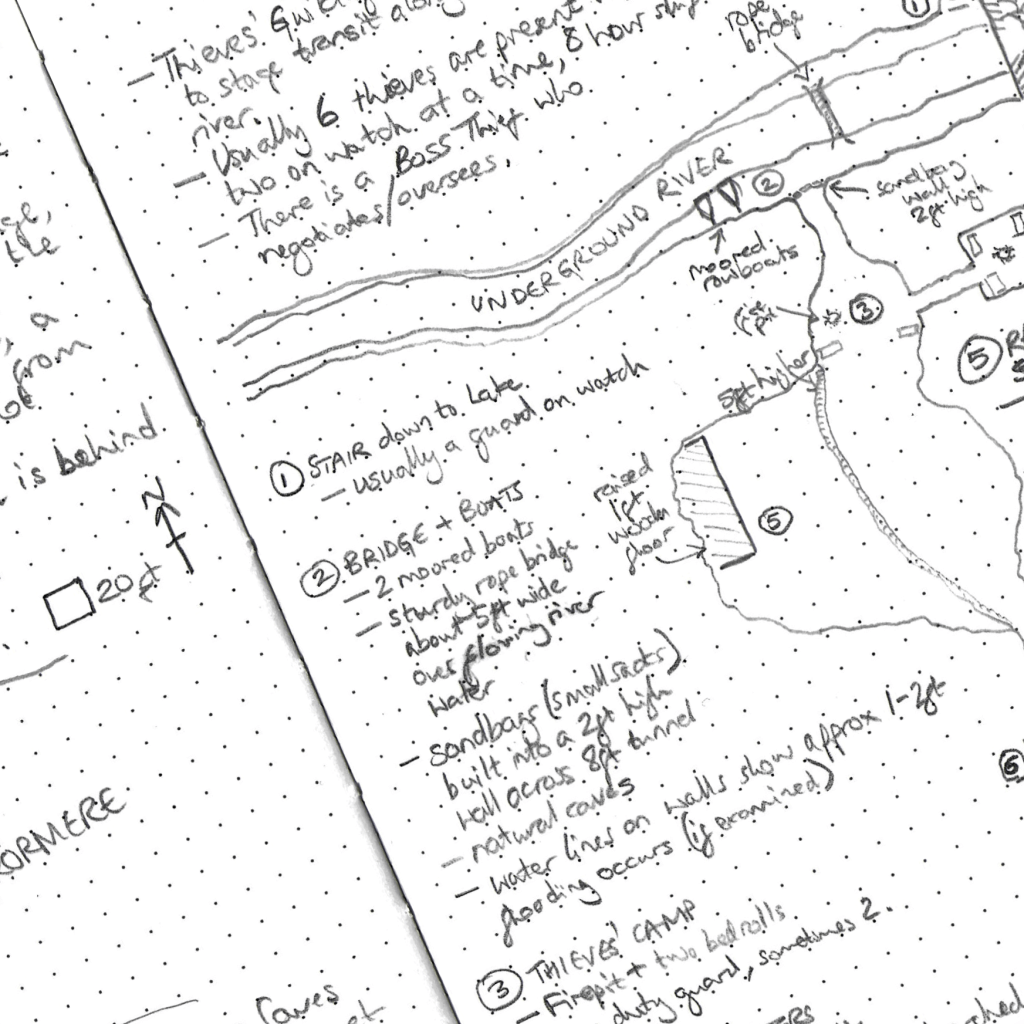 ge,
the
a
from
is behind
N
20ft
ORMERE
Caves
— Thieves' Guild
to stage transit along
river.
— Usually 6 thieves are present
two on watch at a time, 8 hour
— There is a Boss Thief who
negotiates/oversees.
rope
bridge
1
UNDERGROUND RIVER
2
sandbag
wall
2ft high
moored
rowboats
fire
pit
3
5ft higher
5
raised
1ft
wooden
floor
5
6
1 STAIR down to Lake
— usually a guard on watch
2 BRIDGE + BOATS
— 2 moored boats
— sturdy rope bridge
about 5ft wide
over flowing river
water
— sandbags (small sacks)
built into a 2ft high
wall across 8ft tunnel
— natural caves
— water lines on walls show approx 1-2ft
flooding occurs (if examined)
3 THIEVES' CAMP
— Firepit + two bedrolls
duty guard, sometimes 2.